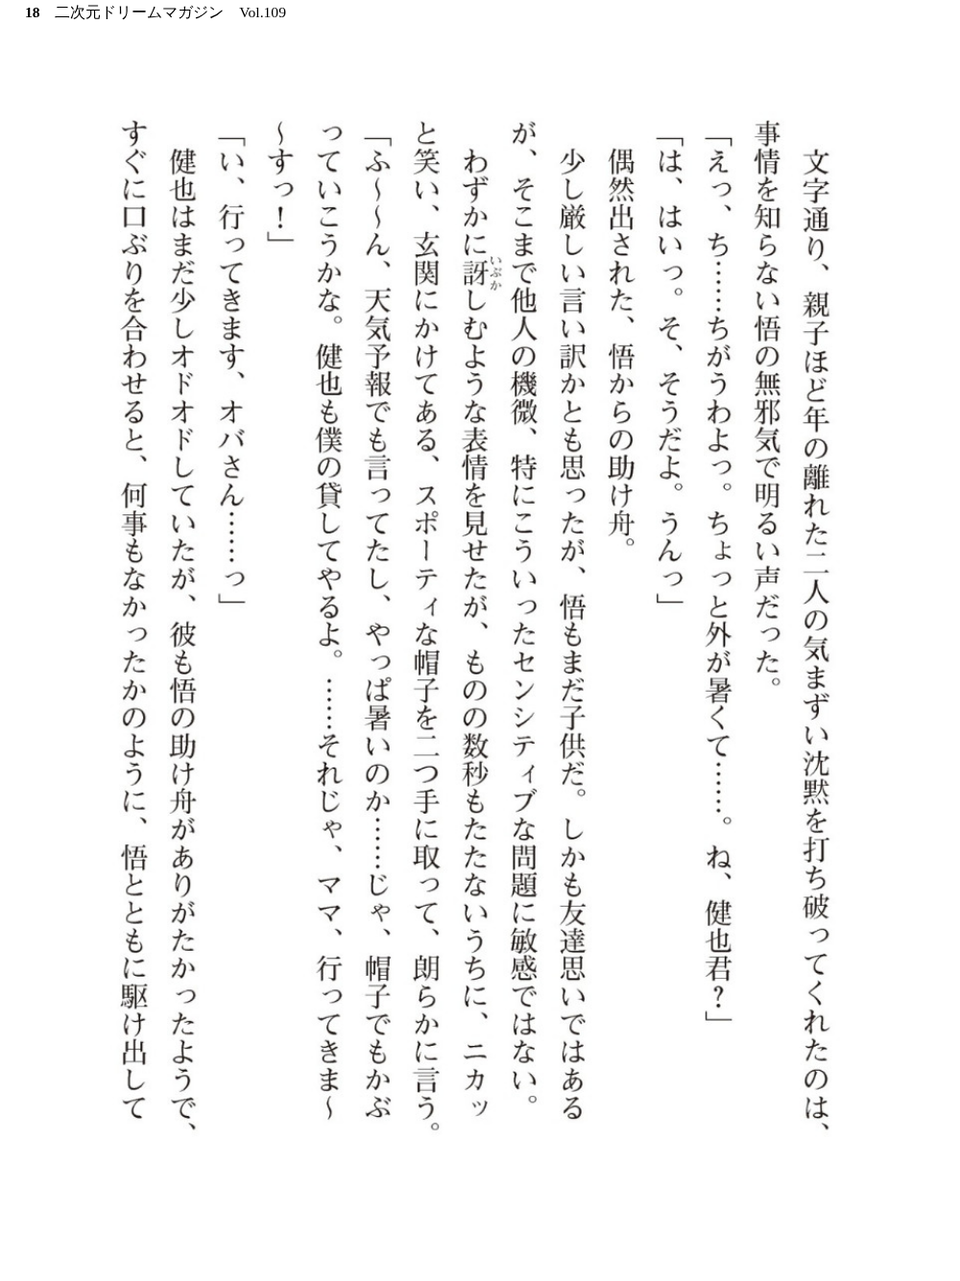 18 二次元ドリームマガジン Vol.109
文字通り、親子ほど年の離れた二人の気まずい沈黙を打ち破ってくれたのは、
事情を知らない悟の無邪気で明るい声だった。
「えっ、ち……ちがうわよっ。ちょっと外が暑くて……。ね、健也君？」
「は、はいっ。そ、そうだよ。うんっ」
偶然出された、悟からの助け舟。
少し厳しい言い訳かとも思ったが、悟もまだ子供だ。しかも友達思いではある
が、そこまで他人の機微、特にこういったセンシティブな問題に敏感ではない。
わずかに訝いぶかしむような表情を見せたが、ものの数秒もたたないうちに、ニカッ
と笑い、玄関にかけてある、スポーティな帽子を二つ手に取って、朗らかに言う。
「ふ～～ん、天気予報でも言ってたし、やっぱ暑いのか……じゃ、帽子でもかぶ
っていこうかな。健也も僕の貸してやるよ。……それじゃ、ママ、行ってきま～
～すっ！」
「い、行ってきます、オバさん……っ」
健也はまだ少しオドオドしていたが、彼も悟の助け舟がありがたかったようで、
すぐに口ぶりを合わせると、何事もなかったかのように、悟とともに駆け出して